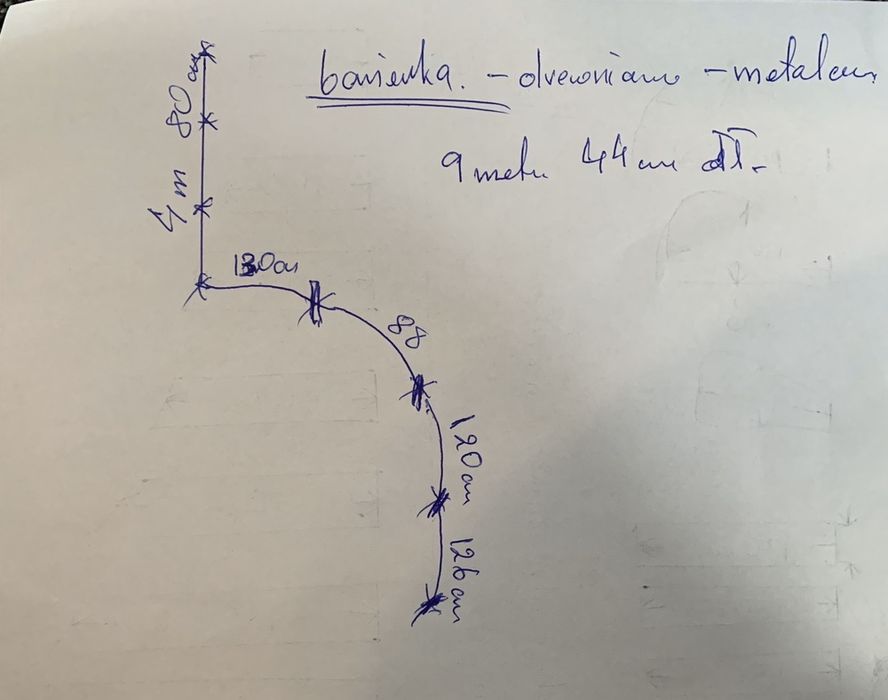 barierka. - drewniano - metalowa
9 metr. 44 cm dł.
4 m 80 cm
130 cm
88
120 cm
126 cm